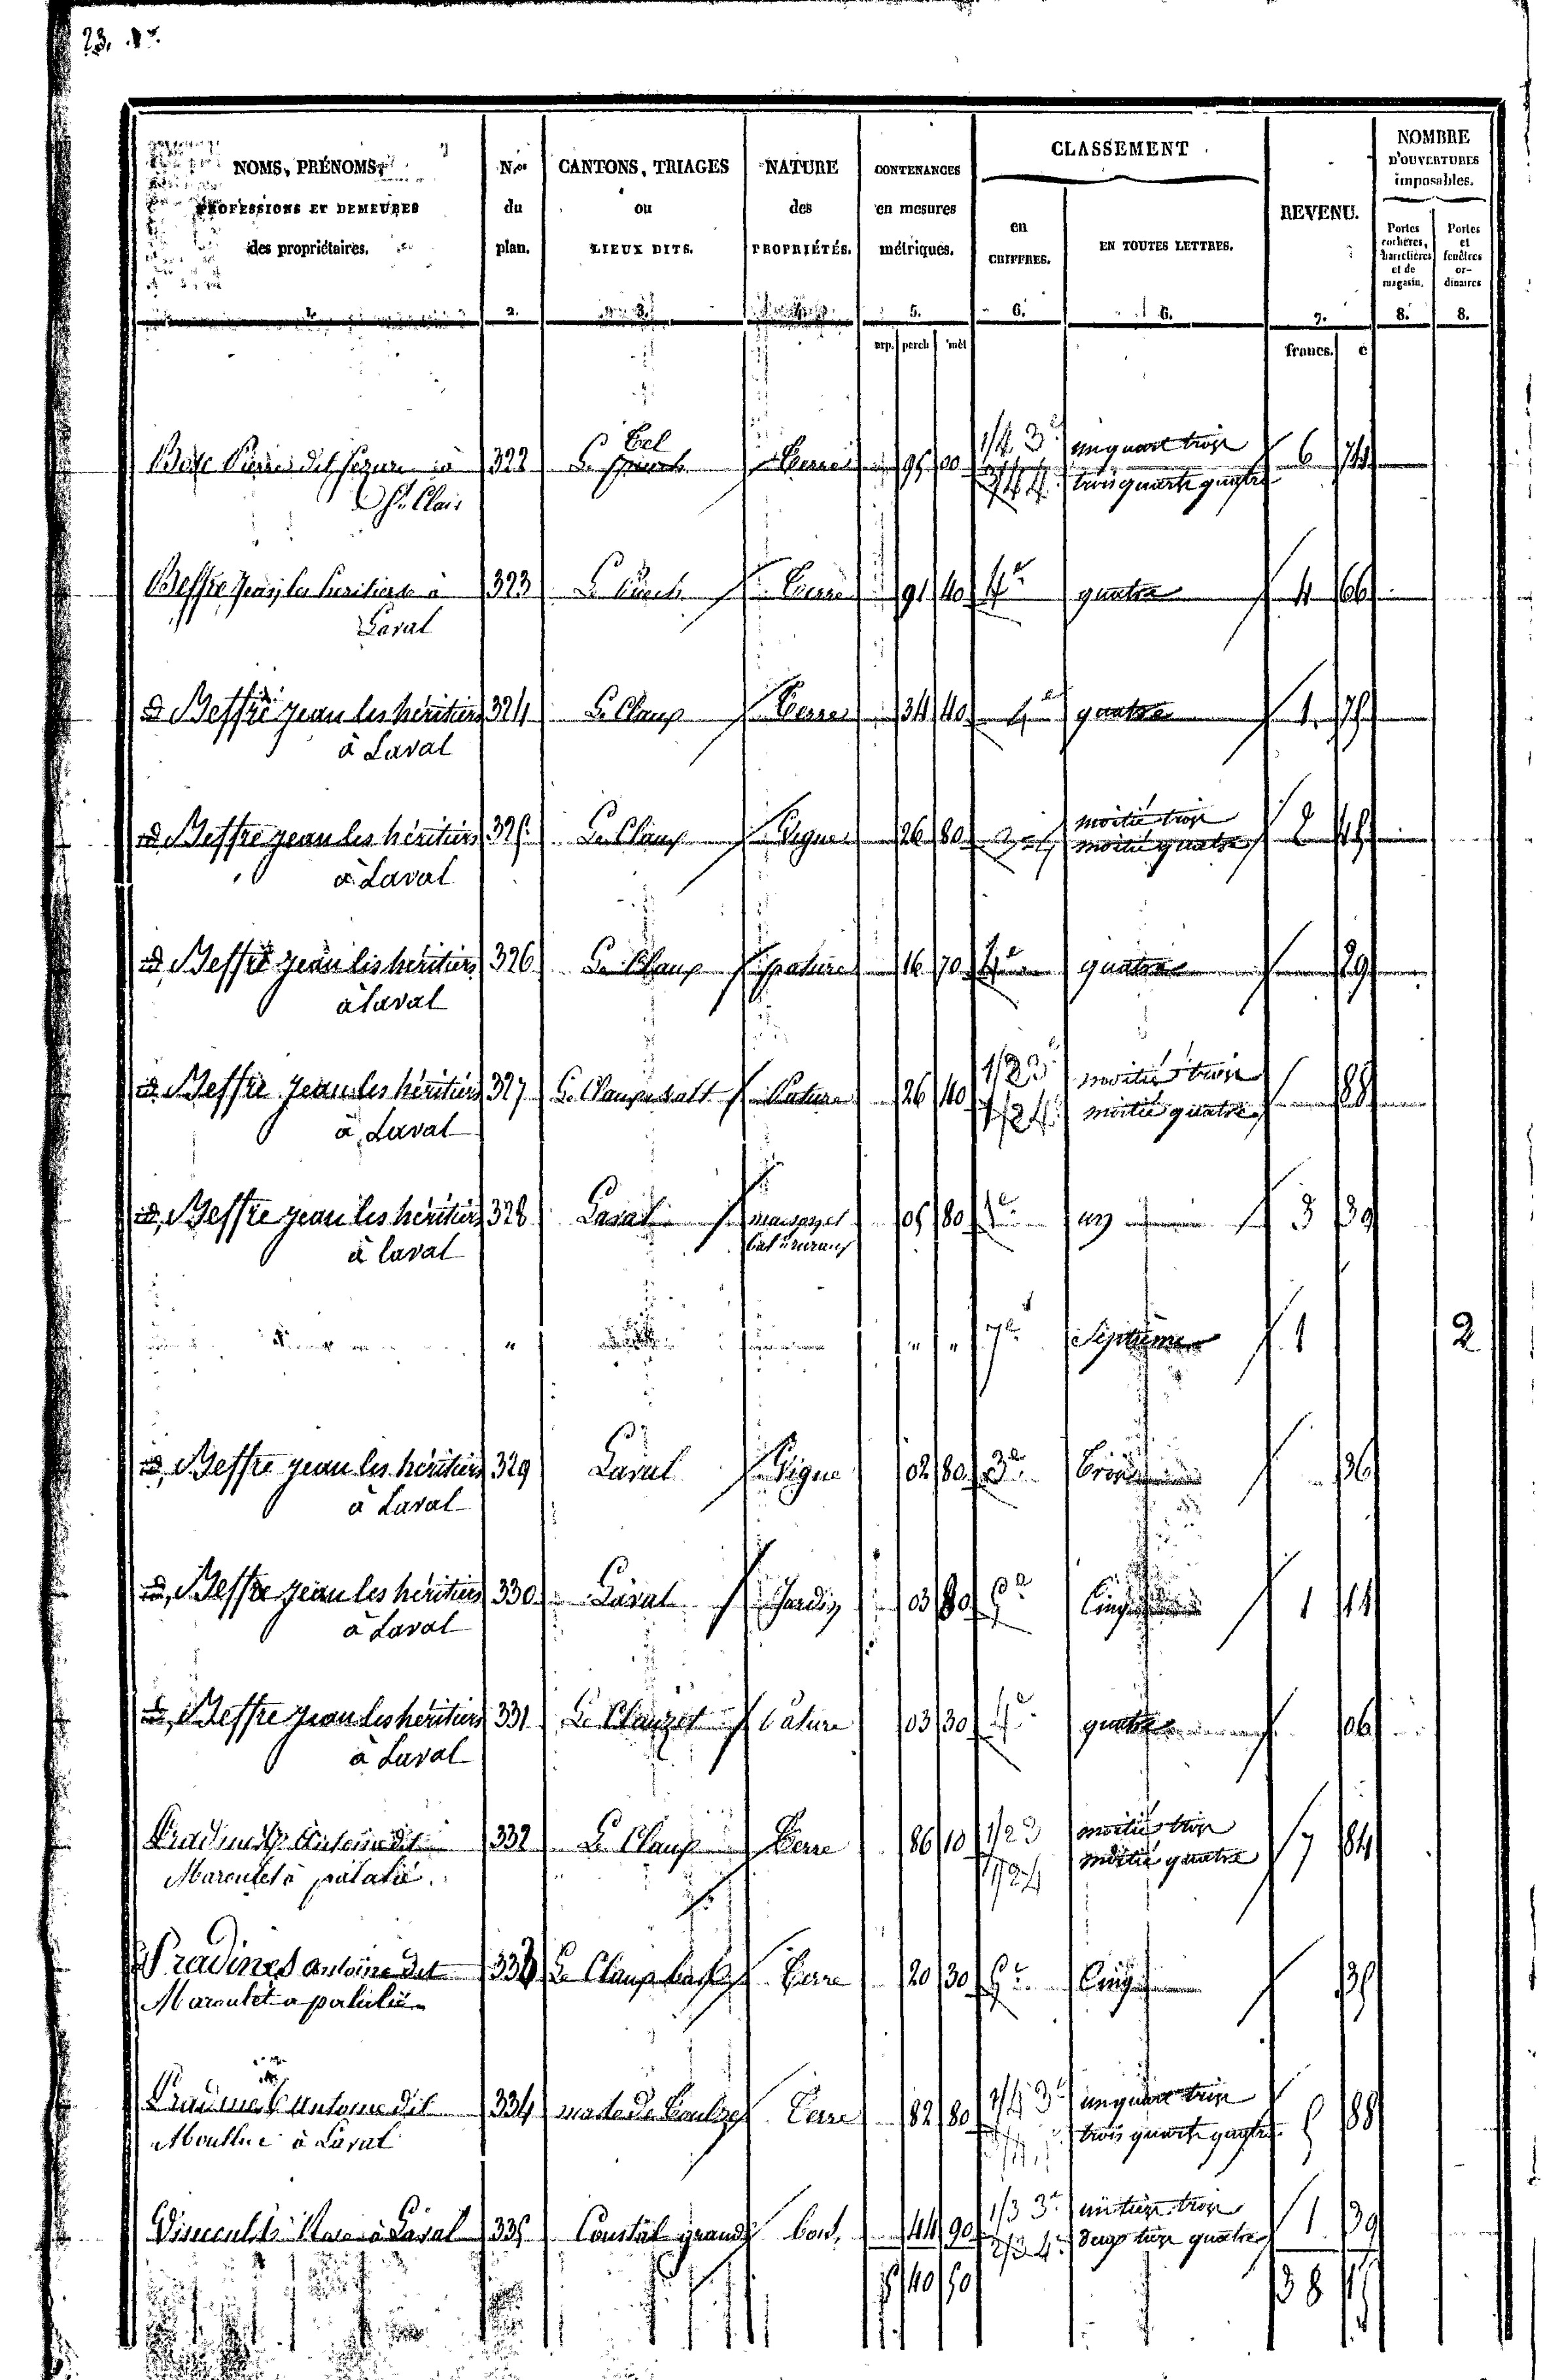 23. Vo.
NOMS, PRÉNOMS, N.os CANTONS, TRIAGES NATURE CONTENANCES CLASSEMENT REVENU. NOMBRE
D'OUVERTURES
imposables.
PROFESSIONS ET DEMEURES du ou des en mesures en EN TOUTES LETTRES. Portes cochères, charretières et de magasin. Portes et fenêtres ordinaires
des propriétaires. plan. LIEUX DITS. PROPRIÉTÉS. métriques. CHIFFRES.
1. 2. 3. 4. 5. 6. 6. 7. 8. 8.
arp. perch mèt francs. c
Pierre dit à 322 Le Terre 95 00 1/4 3e un quart trois 6 74
St. Clair 3/4 4e trois quarts quatre
Beffre Jean, les heritiers à 323 Le Terre 91 40 4e quatre 4 66
Laval
id Beffre jean les héritiers 324 Le Claup Terre 34 40 4e quatre 1 75
à Laval
id Beffre jean les héritiers 325 Le Claup Vigne 26 80 3-4 moitié trois 2 45
à Laval moitié quatre
id Beffre jean les héritiers 326 Le Claup pature 16 70 4e quatre 29
à laval
id Beffre jean les héritiers 327 Le Claup Pature 26 40 1/2 3e moitié trois 88
à Laval 1/2 4e moitié quatre
id, Beffre jean les héritiers 328 Laval maison et 05 80 1e un 3 39
à laval bat. ruraux
" " " 7e Septième 1 2
id, Beffre jean les héritiers 329 Laval Vigne 02 80 3e trois 36
à Laval
id, Beffre jean les héritiers 330 Laval Jardin 03 80 5e Cinq 1 14
à Laval
id, Beffre jean les héritiers 331 Le Clauzet Pature 03 30 4e quatre 06
à Laval
Pradines Antoine dit 332 Le Claup Terre 86 10 1/2 3 moitié trois 7 84
Maroutet à palatié. 1/2 4 moitié quatre
Pradines antoine dit 333 Le Claup bas Terre 20 30 5e Cinq 35
Maroutet a palatié
Pradines Antoine dit 334 Terre 82 80 1/4 3e un quart trois 5 88
à Laval trois quarts quatre
à Laval 335 Coustal grand bois, 44 90 1/3 3e un tiers trois 1 39
2/3 4e deux tiers quatre
5 40 50 38